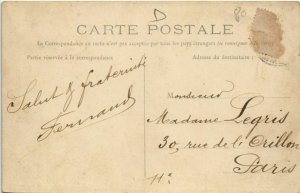 D
80
CARTE POSTALE
La Correspondance au recto n'est pas acceptée par tous les pays étrangers (se renseigner à la
Partie réservée à la correspondance
Adresse du destinataire
Salut & fraternité
Fernand
Monsieur
Madame Legris
30, rue de l'Orillon
Paris
11e